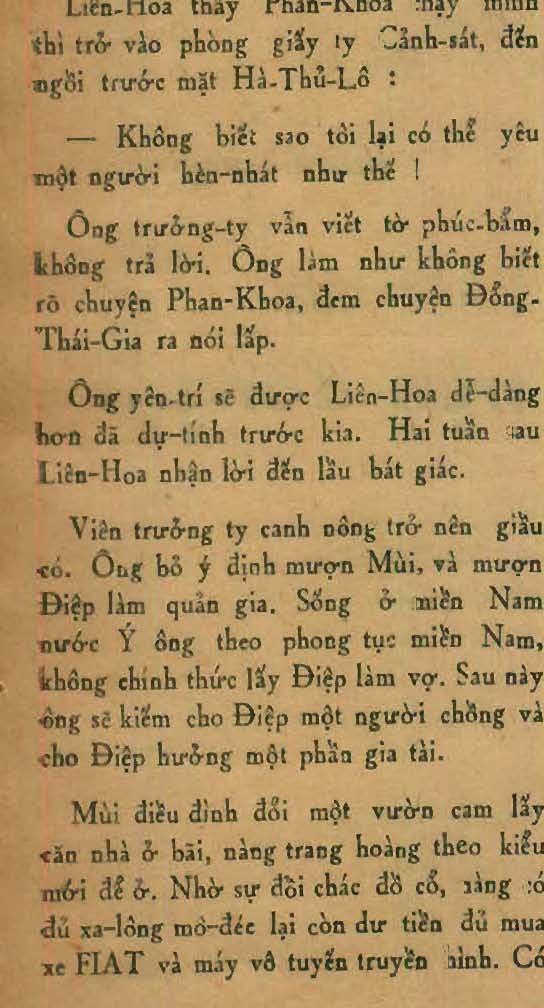 Liên-Hoa thấy Phan-Khoa chạy mình
thì trở vào phòng giấy ty Cảnh-sát, đến
ngồi trước mặt Hà-Thủ-Lô :
— Không biết sao tôi lại có thể yêu
một người hèn-nhát như thế !
Ông trưởng-ty vẫn viết tờ phúc-bẩm,
không trả lời. Ông làm như không biết
rõ chuyện Phan-Khoa, đem chuyện Đổng-
Thái-Gia ra nói lấp.
Ông yên-trí sẽ được Liên-Hoa dễ-dàng
hơn đã dự-tính trước kia. Hai tuần sau
Liên-Hoa nhận lời đến lầu bát giác.
Viên trưởng ty canh nông trở nên giầu
có. Ông bỏ ý định mượn Mùi, và mượn
Điệp làm quản gia. Sống ở miền Nam
nước Ý ông theo phong tục miền Nam,
không chính thức lấy Điệp làm vợ. Sau này
ông sẽ kiếm cho Điệp một người chồng và
cho Điệp hưởng một phần gia tài.
Mùi điều đình đổi một vườn cam lấy
căn nhà ở bãi, nàng trang hoàng theo kiểu
mới để ở. Nhờ sự đồi chác đồ cổ, nàng có
đủ xa-lông mò-đéc lại còn dư tiền đủ mua
xe FIAT và máy vô tuyến truyền hình. Có